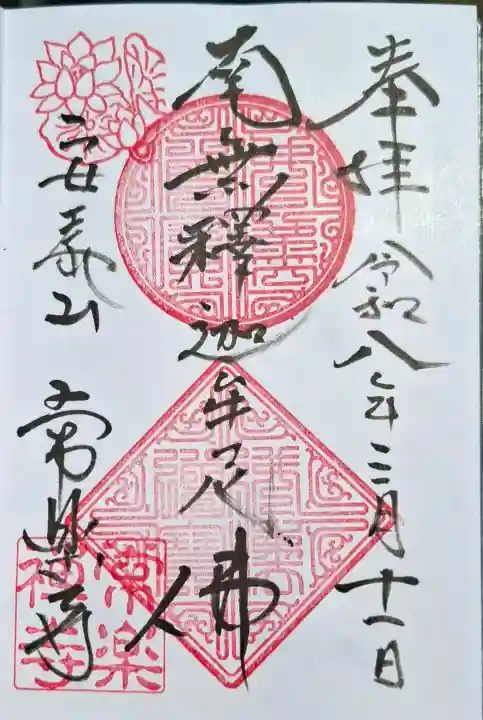 奉拝 令和八年三月十一日
南無釋迦牟尼佛
安 山 常楽寺
常楽
禅寺